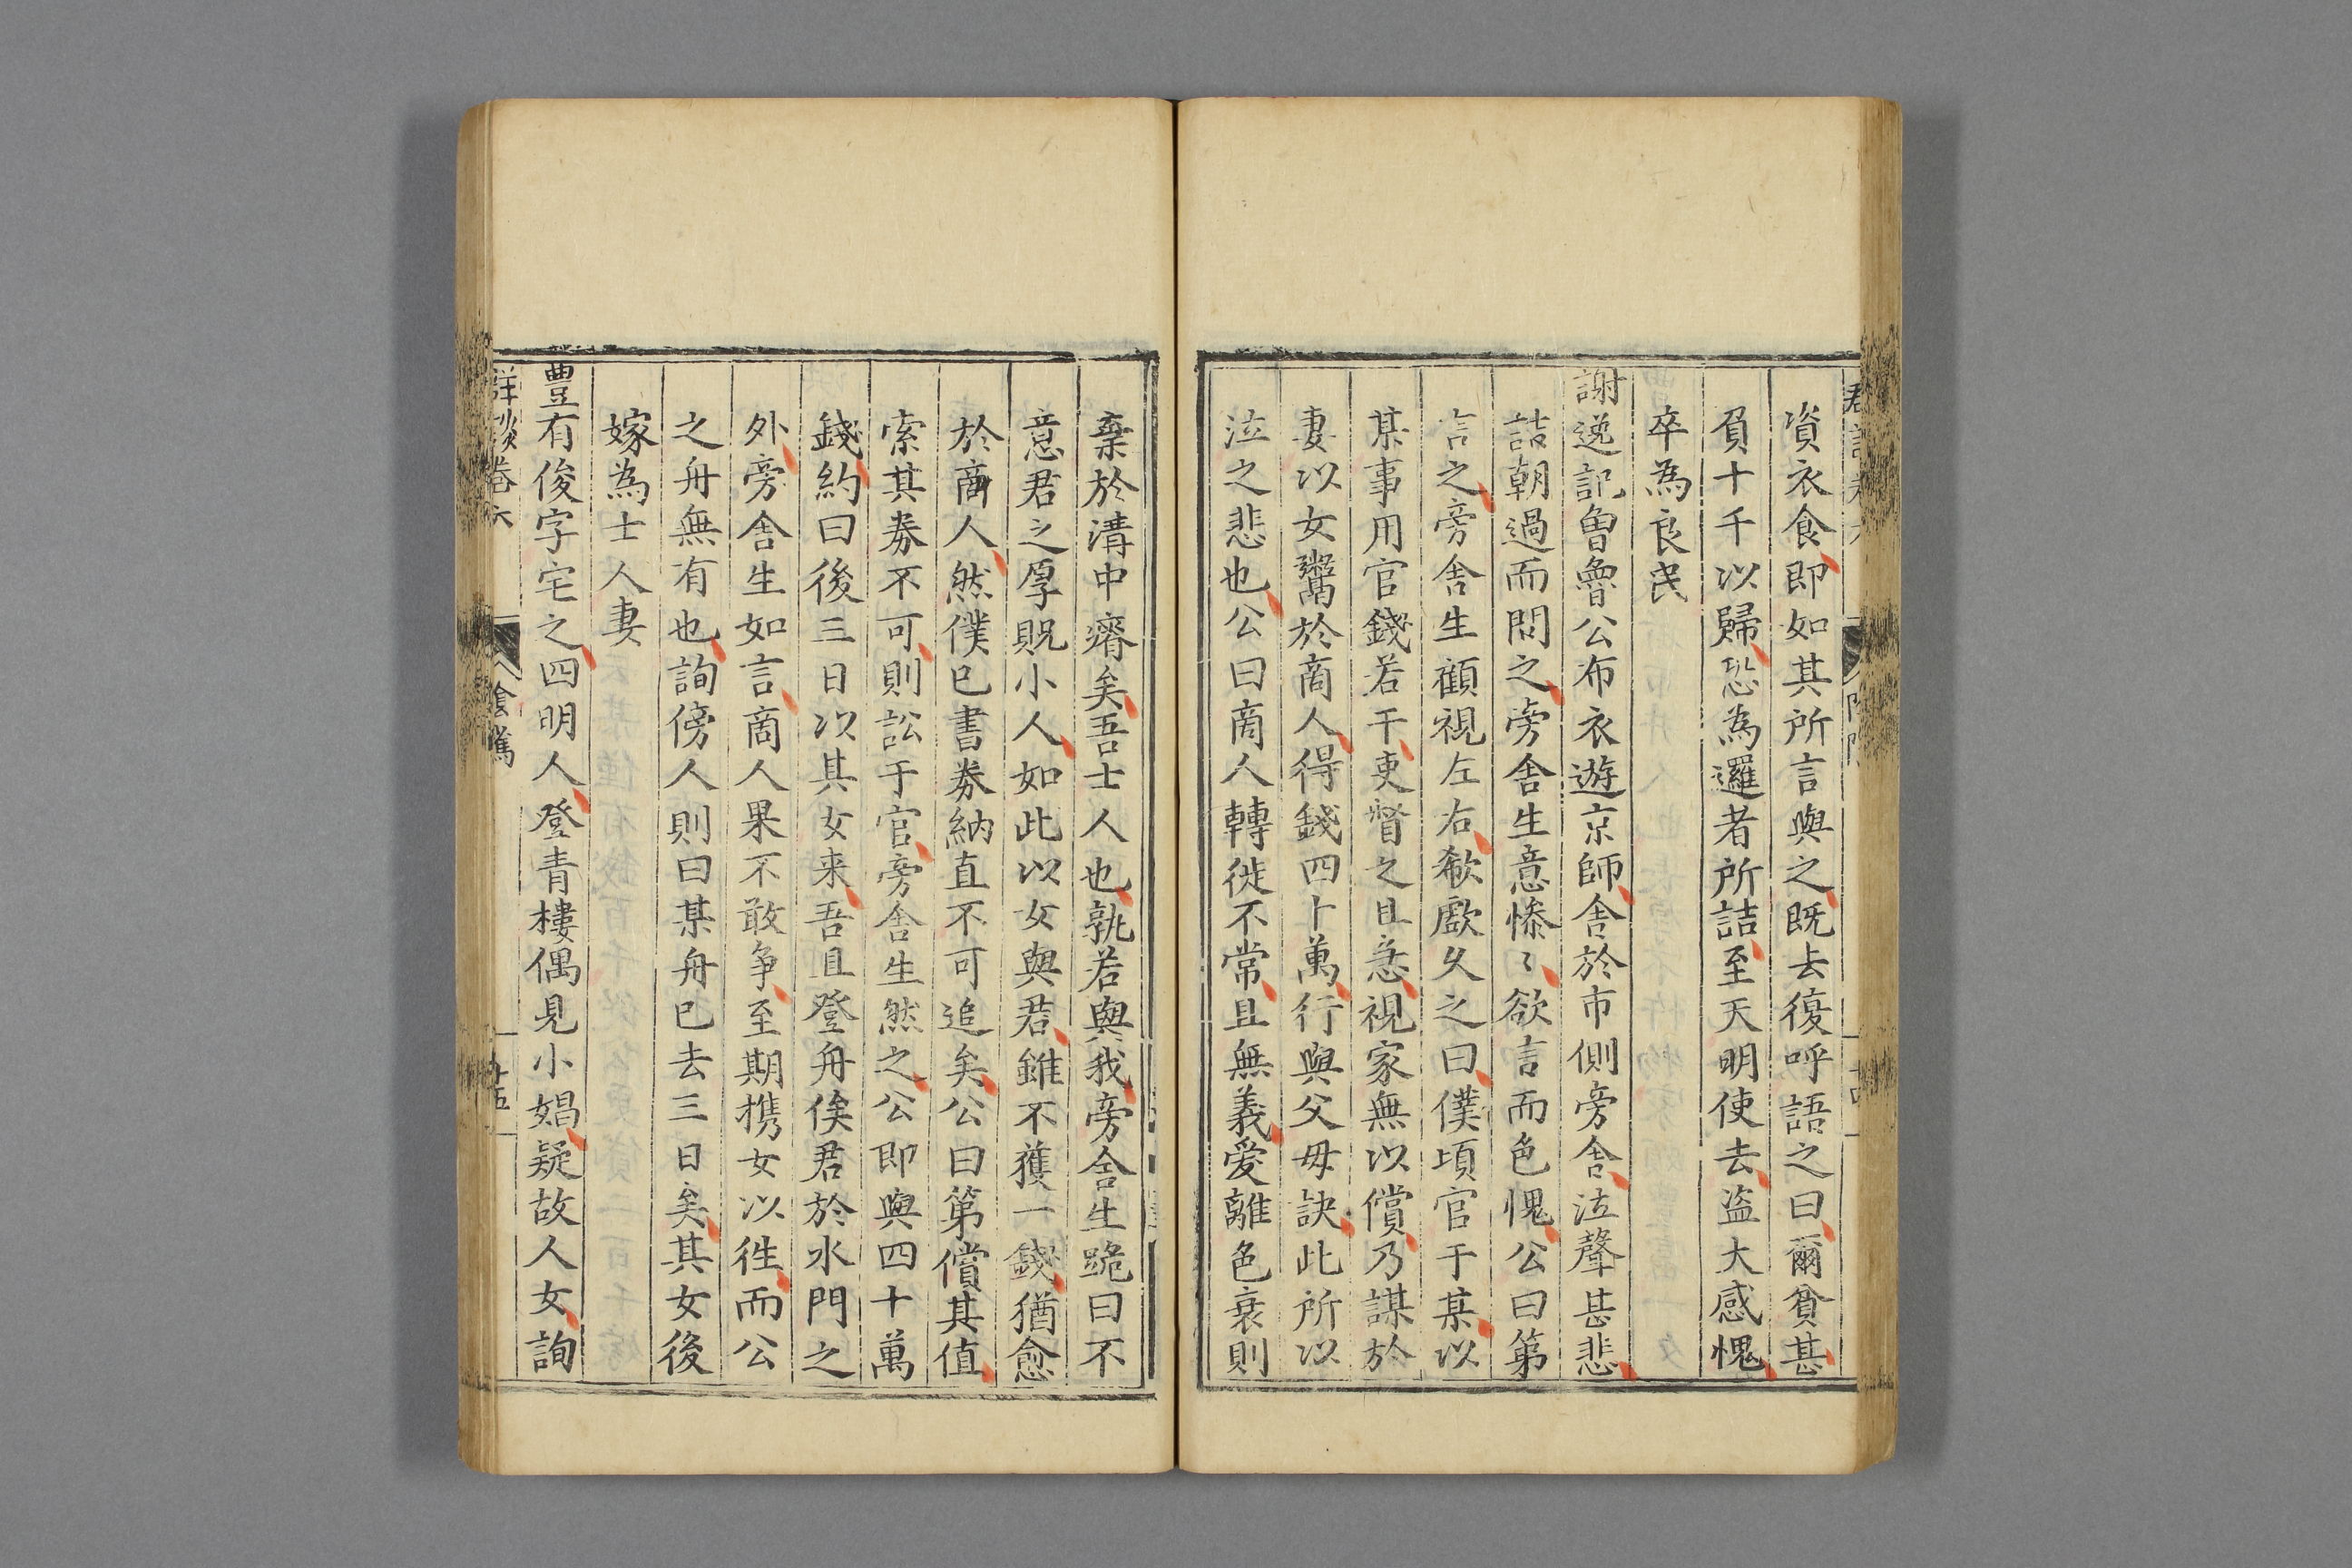 資衣食即如其所言與之既去復呼語之曰爾貧甚
負十千以歸恐為邏者所詰至天明使去盜大感愧
卒為良民
謝逸記曾魯公布衣遊京師舍於市側旁舍泣聲甚悲
詰朝過而問之旁舍生意慘〻欲言而色愧公曰第
言之旁舍生顧視左右欷歔久之曰僕頃官于某以
某事用官錢若干吏督之且急視家無以償乃謀於
妻以女鬻於商人得錢四十萬行與父母訣此所以
泣之悲也公曰商人轉徙不常且無義愛離色衰則
棄於溝中瘠矣吾士人也孰若與我旁舍生跪曰不
意君之厚貺小人如此以女與君雖不獲一錢猶愈
於商人然僕已書券納直不可追矣公曰第償其值
索其券不可則訟于官旁舍生然之公即與四十萬
錢約曰後三日以其女来吾且登舟俟君於水門之
外旁舍生如言商人果不敢爭至期携女以徃而公
之舟無有也詢傍人則曰某舟已去三日矣其女後
嫁為士人妻
豊有俊字宅之四明人登青樓偶見小娼疑故人女詢
談卷六 陰騭 十五